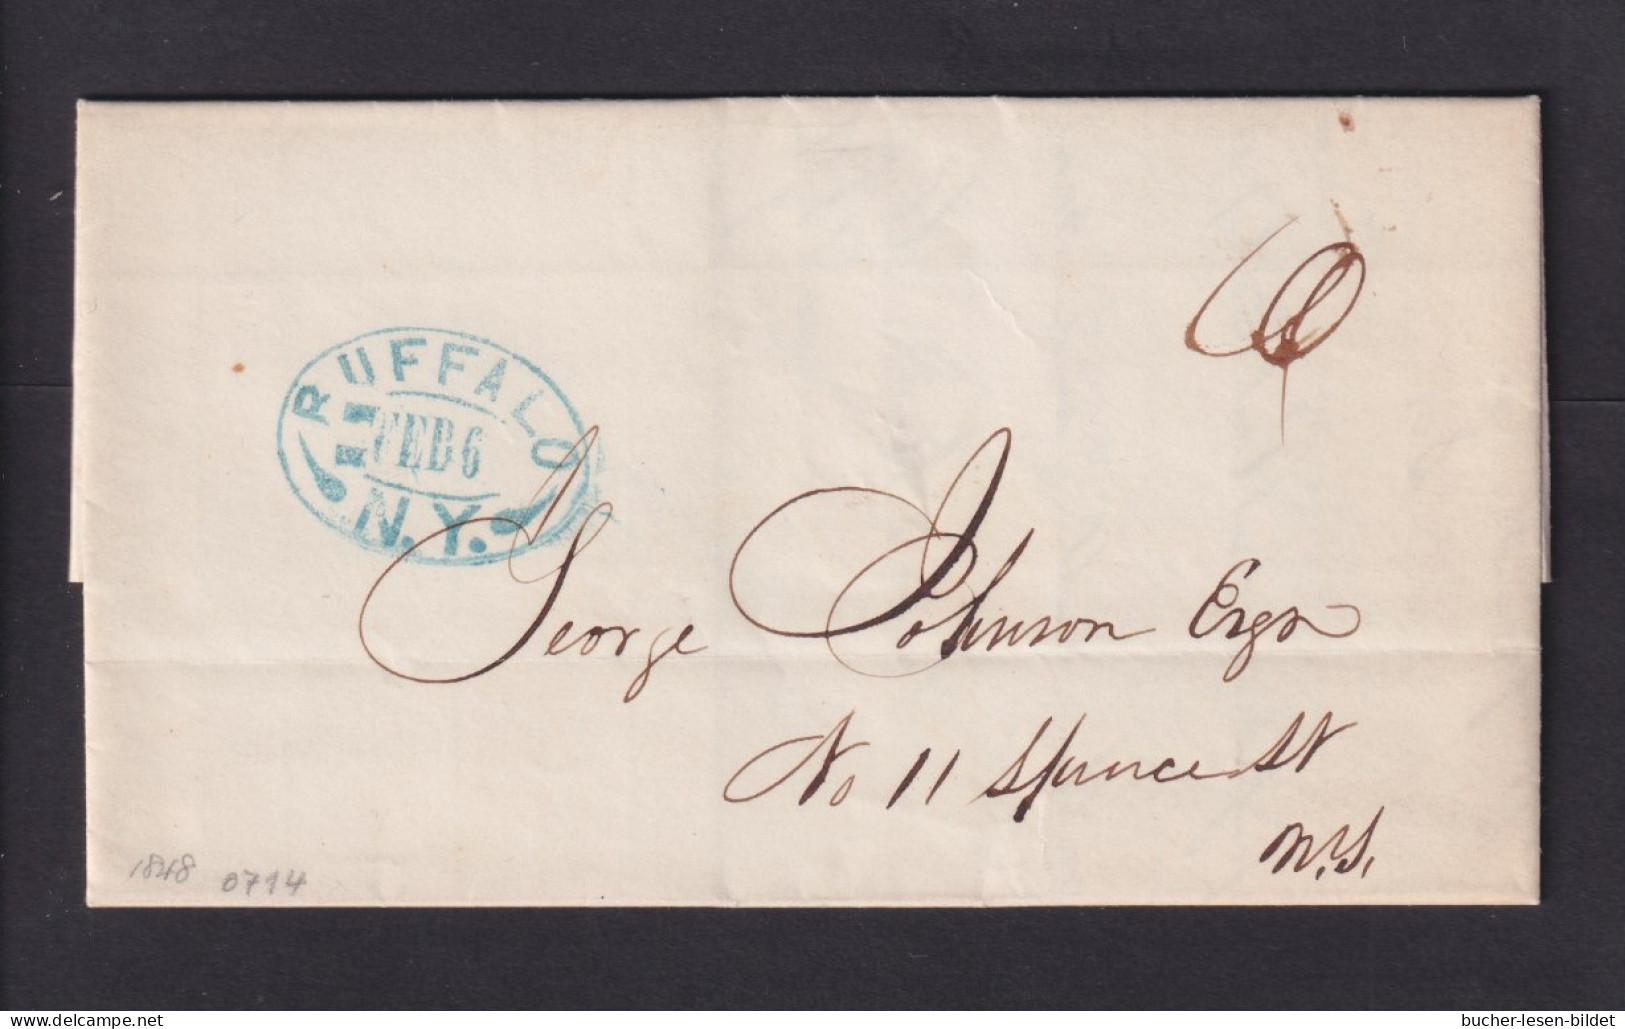 BUFFALO
FEB 6
N.Y.
George Johnson Esqr
No 11 Spruce St
N.Y.
1848 0714
bucher-lesen-bildet
delcampe.net